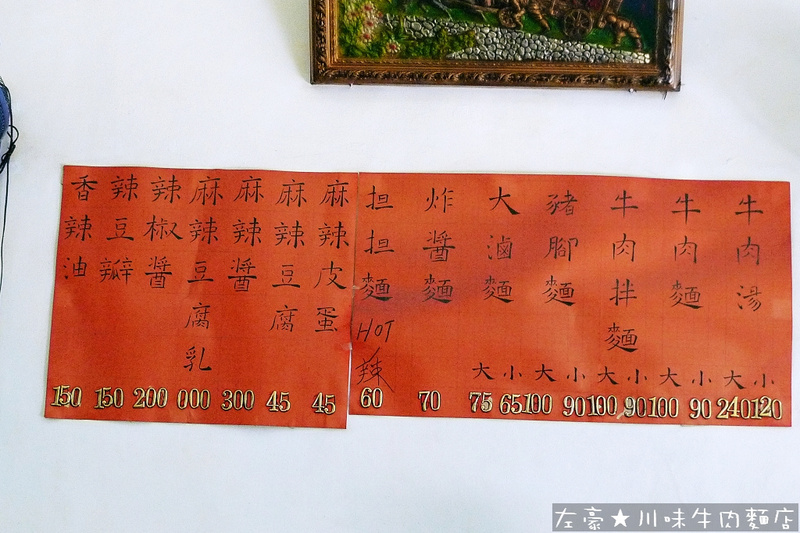 牛肉湯 大 小 240 120
牛肉麵 大 小 100 90
牛肉拌麵 大 小 100 90
豬腳麵 大 小 100 90
大滷麵 大 小 75 65
炸醬麵 70
担担麵 HOT 辣 60
麻辣皮蛋 45
麻辣豆腐 45
麻辣醬 300
麻辣豆腐乳 000
辣椒醬 200
辣豆瓣 150
香辣油 150
左豪★川味牛肉麵店